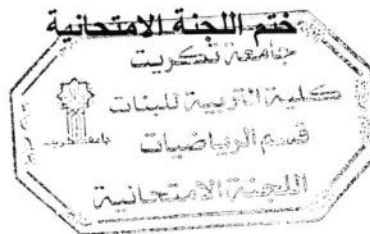 ختم اللجنة الامتحانية
جامعة تكريت
كلية التربية للبنات
قسم الرياضيات
اللجنة الامتحانية